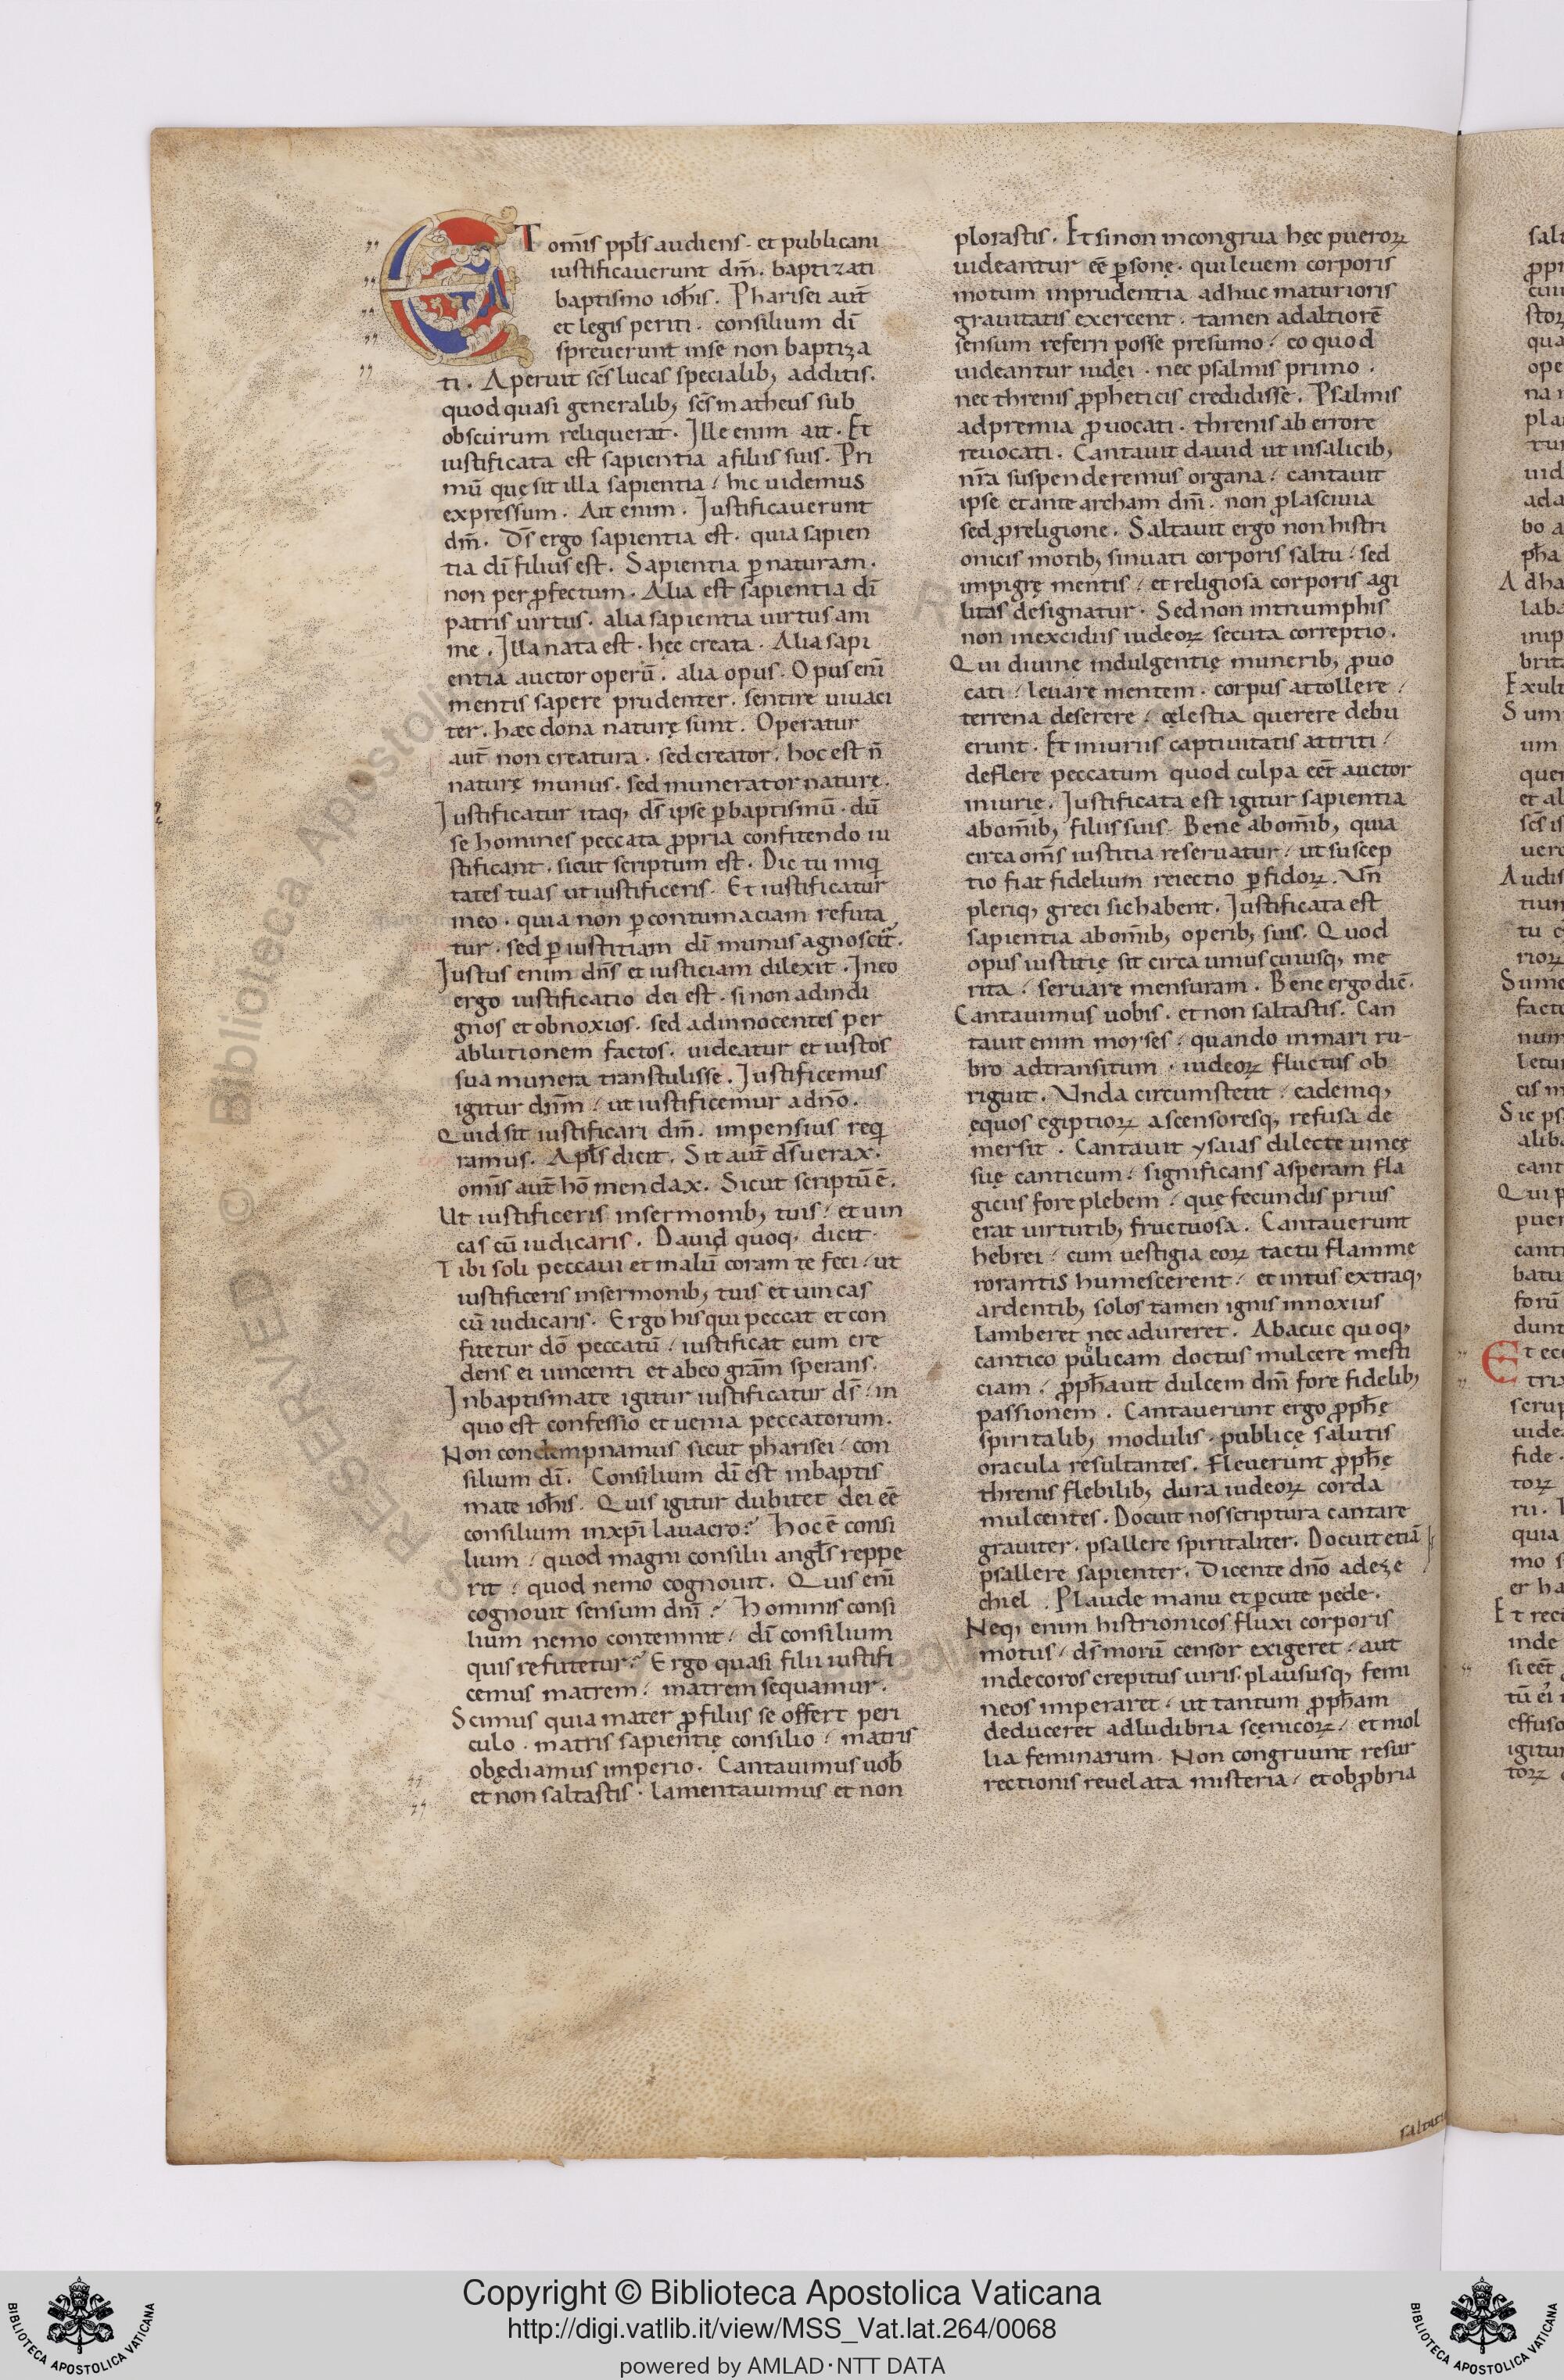 ET omīs ppl̄s audiens· et publicani
iustificauerunt dm̄. baptizati
baptismo ioh̄is. Pharisei aut̄
et legis periti· consilium dī
spreuerunt inse non baptiza
ti. Aperuit scs̄ lucas specialib; additis.
quod quasi generalib; scs̄ matheus sub
obscurum reliquerat. Ille enim ait. Et
iustificata est sapientia a filiis suis. Pri
mū quę sit illa sapientia / hic uidemus
expressum. Ait enim. Iustificauerunt
dm̄. Ds̄ ergo sapientia est. quia sapien
tia dī filius est. Sapientia ꝑ naturam.
non per ꝓfectum. Alia est sapientia dī
patris uirtus. alia sapientia uirtus ani
me. Illa nata est. hęc creata. Alia sapi
entia auctor operū. alia opus. Opus eni̅
mentis sapere prudenter. sentire uiuaci
ter. hæc dona naturę sunt. Operatur
aut̄ non creatura. sed creator. hoc est n̄
naturę munus. sed munerator naturę.
Iustificatur itaq; ds̄ ipse ꝑ baptismū. dū
se homines peccata ꝓpria confitendo iu
stificant. sicut scriptum est. Dic tu iniqi
tates tuas ut iustificeris. Et iustificatur
in eo. quia non ꝑ contumaciam refuta
tur. sed ꝑ iustitiam dī munus agnoscit̄.
Iustus enim dn̄s et iusticiam dilexit. In eo
ergo iustificatio dei est. si non ad indi
gnos et obnoxios. sed ad innocentes per
ablutionem factos. uideatur et iustos
sua munera transtulisse. Iustificemus
igitur dn̄m / ut iustificemur a dn̄o.
Quid sit iustificari dm̄. impensius reqi
ramus. Apl̄s dicit. Sit aut̄ ds̄ uerax.
omīs aut̄ hō mendax. Sicut scriptū ē.
Ut iustificeris in sermonib; tuis / et uin
cas cū iudicaris. Dauid quoq; dicit.
Tibi soli peccaui et malū coram te feci / ut
iustificeris in sermonib; tuis et uincas
cū iudicaris. Ergo his qui peccat et con
fitetur dō peccatū / iustificat eum cre
dens ei uincenti et ab eo grām sperans.
In baptismate igitur iustificatur ds̄ / in
quo est confessio et uenia peccatorum.
Non condempnamus sicut pharisei / con
silium dī. Consilium dī est in baptis
mate ioh̄is. Quis igitur dubitet dei eē
consilium in xp̄i lauacro? Hoc ē consi
lium / quod magni consilii angl̄s reppe
rit / quod nemo cognouit. Quis eni̅
cognouit sensum dn̄i? Hominis consi
lium nemo contemnit / dī consilium
quis refutetur? Ergo quasi filii iustifi
cemus matrem / matrem sequamur.
Scimus quia mater ꝓ filiis se offert peri
culo. matris sapientię consilio / matris
obędiamus imperio. Cantauimus uob̄
et non saltastis. lamentauimus et non
plorastis. Et si non incongrua hęc pueroꝝ
uideantur eē ꝑsonę. qui leuem corporis
motum inprudentia adhuc maturioris
grauitatis exercent. tamen ad altiorē
sensum referri posse presumo / eo quod
uideantur iudei. nec psalmis primo.
nec threnis ꝓpheticis credidisse. Psalmis
ad premia ꝓuocati. threnis ab errore
reuocati. Cantauit dauid ut in salicib;
nr̄a suspenderemus organa / cantauit
ipse et ante archam dm̄. non ꝓ lasciuia
sed ꝓ religione. Saltauit ergo non histri
onicis motib; sinuati corporis saltu / sed
impigrę mentis / et religiosa corporis agi
litas designatur. Sed non in triumphis
non in excidiis iudeoꝝ secuta correptio.
Qui diuinę indulgentię munerib; ꝓuo
cati / leuare mentem. corpus attollere /
terrena deserere / cęlestia querere debu
erunt. Et iniuriis captiuitatis attriti /
deflere peccatum quod culpa eēt auctor
iniurię. Iustificata est igitur sapientia
ab omīb; filiis suis. Bene ab omīb; quia
circa omīs iustitia reseruatur / ut suscep
tio fiat fidelium reiectio ꝑfidoꝝ. Vn̄
pleriq; greci sic habent. Iustificata est
sapientia ab omīb; operib; suis. Quod
opus iustitię sit circa unius cuiusq; me
rita / seruare mensuram. Bene ergo dic̄.
Cantauimus uobis. et non saltastis. Can
tauit enim moyses / quando in mari ru-
bro ad transitum. iudeoꝝ fluctus ob
riguit. Vnda circumstetit / eademq;
equos egiptioꝝ ascensoresq; refusa de
mersit. Cantauit ysaias dilecte uineę
suę canticum / significans asperam fla
giciis fore plebem / quę fecundis prius
erat uirtutib; fructuosa. Cantauerunt
hebrei / cum uestigia eoꝝ tactu flamme
rorantis humescerent / et intus extraq;
ardentib; solos tamen ignis innoxius
lamberet nec adureret. Abacuc quoq;
cantico publicam doctus mulcere mesti
ciam / ꝓph̄auit dulcem dn̄i fore fidelib;
passionem. Cantauerunt ergo ꝓph̄ę
spiritalib; modulis. publicę salutis
oracula resultantes. fleuerunt ꝓph̄ę
threnis flebilib; dura iudeoꝝ corda
mulcentes. Docuit nos scriptura cantare
grauiter. psallere spiritaliter. Docuit etiā
psallere sapienter. Dicente dn̄o ad eze
chiel. Plaude manu et ꝑcute pede.
Neq; enim histrionicos fluxi corporis
motus / ds̄ morū censor exigeret / aut
indecoros crepitus uiris. plaususq; femi
neos imperaret / ut tantum ꝓph̄am
deduceret ad ludibria scęnicoꝝ / et mol
lia feminarum. Non congruunt resur
rectionis reuelata misteria / et obꝓbria
Copyright © Biblioteca Apostolica Vaticana
http://digi.vatlib.it/view/MSS_Vat.lat.264/0068
powered by AMLAD·NTT DATA
BIBLIOTECA APOSTOLICA VATICANA
BIBLIOTECA APOSTOLICA VATICANA